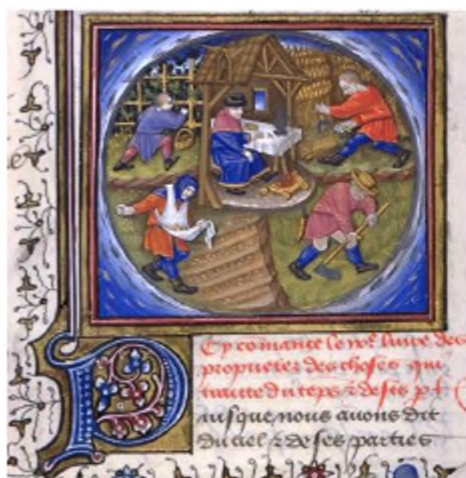 Cy comance le ixe livre des
proprietez des choses qui
traicte du teps & de ses p
Puis que nous avons dit
du ciel & de ses parties